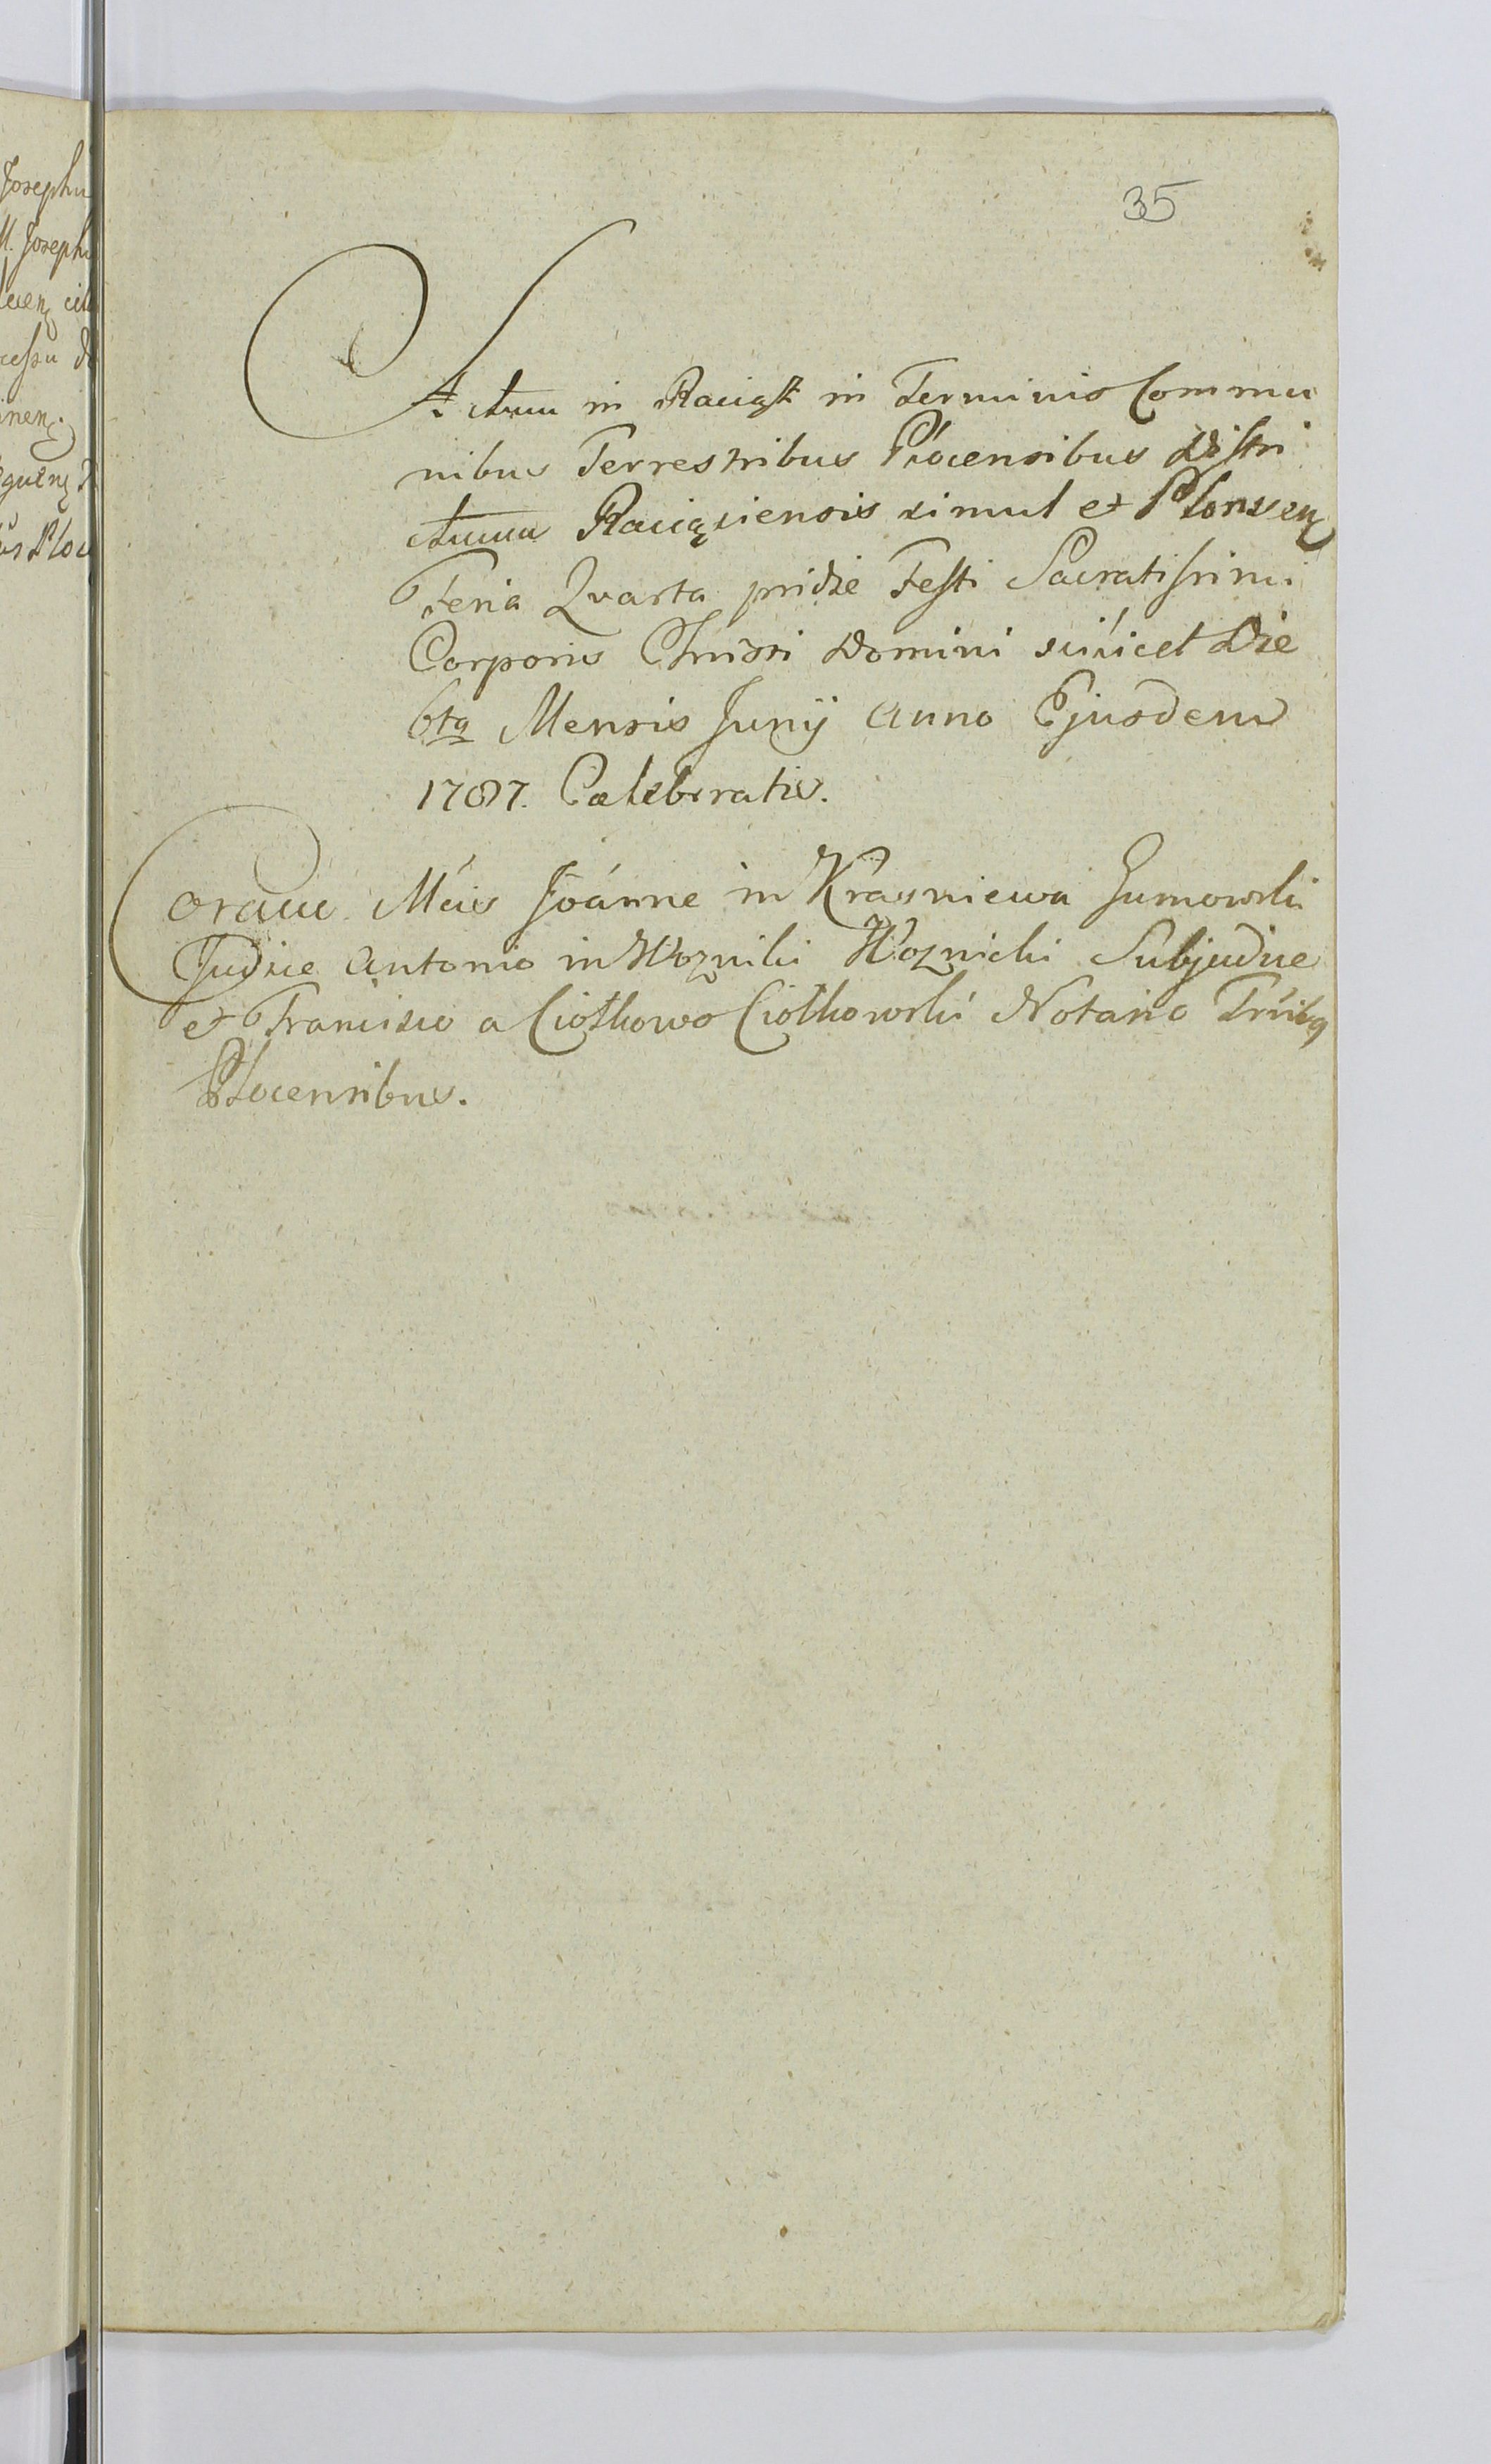 35
Actum in Raciąż in Terminis Commu
nibus Terrestribus Plocensibus Distri
ctuum Raciąziensis simul et Plonsen
Feria Quarta pridie Festi Sacratissimi
Corporis Christi Domini scilicet Die
6ta Mensis Junij Anno Ejusdem
1787. Caelebratis.
Coram Mcis Joánne in Krasniewa Jumowski
Judice Antonio in Wozniki Woznicki Subjudice
et Francisco a Ciołkowo Ciołkowski Notario Trribq
Plocensibus.